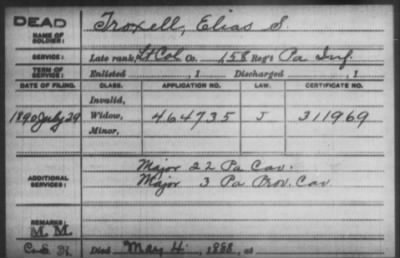 DEAD
NAME OF SOLDIER: Troxell, Elias S.
SERVICE: Late rank, Lt Col Co. , 158 Reg't Pa Inf.
TERM OF SERVICE: Enlisted , 1 Discharged , 1
DATE OF FILING. CLASS. APPLICATION NO. LAW. CERTIFICATE NO.
Invalid,
1890 July 29 Widow, 464735 J 311969
Minor,
Major 22 Pa Cav.
ADDITIONAL SERVICES: Major 3 Pa Prov. Cav
REMARKS:
M. M.
Died May 4, 1888, at